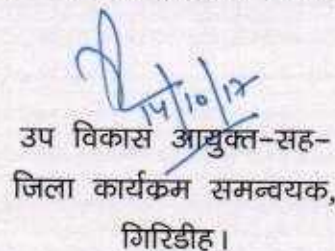 14/10/17
उप विकास आयुक्त-सह-
जिला कार्यक्रम समन्वयक,
गिरिडीह।